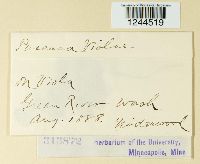 1244519
Puccinia Violae
on Viola
Green River Wash
Aug. 1888.
Herbarium of the University,
Minneapolis, Minn